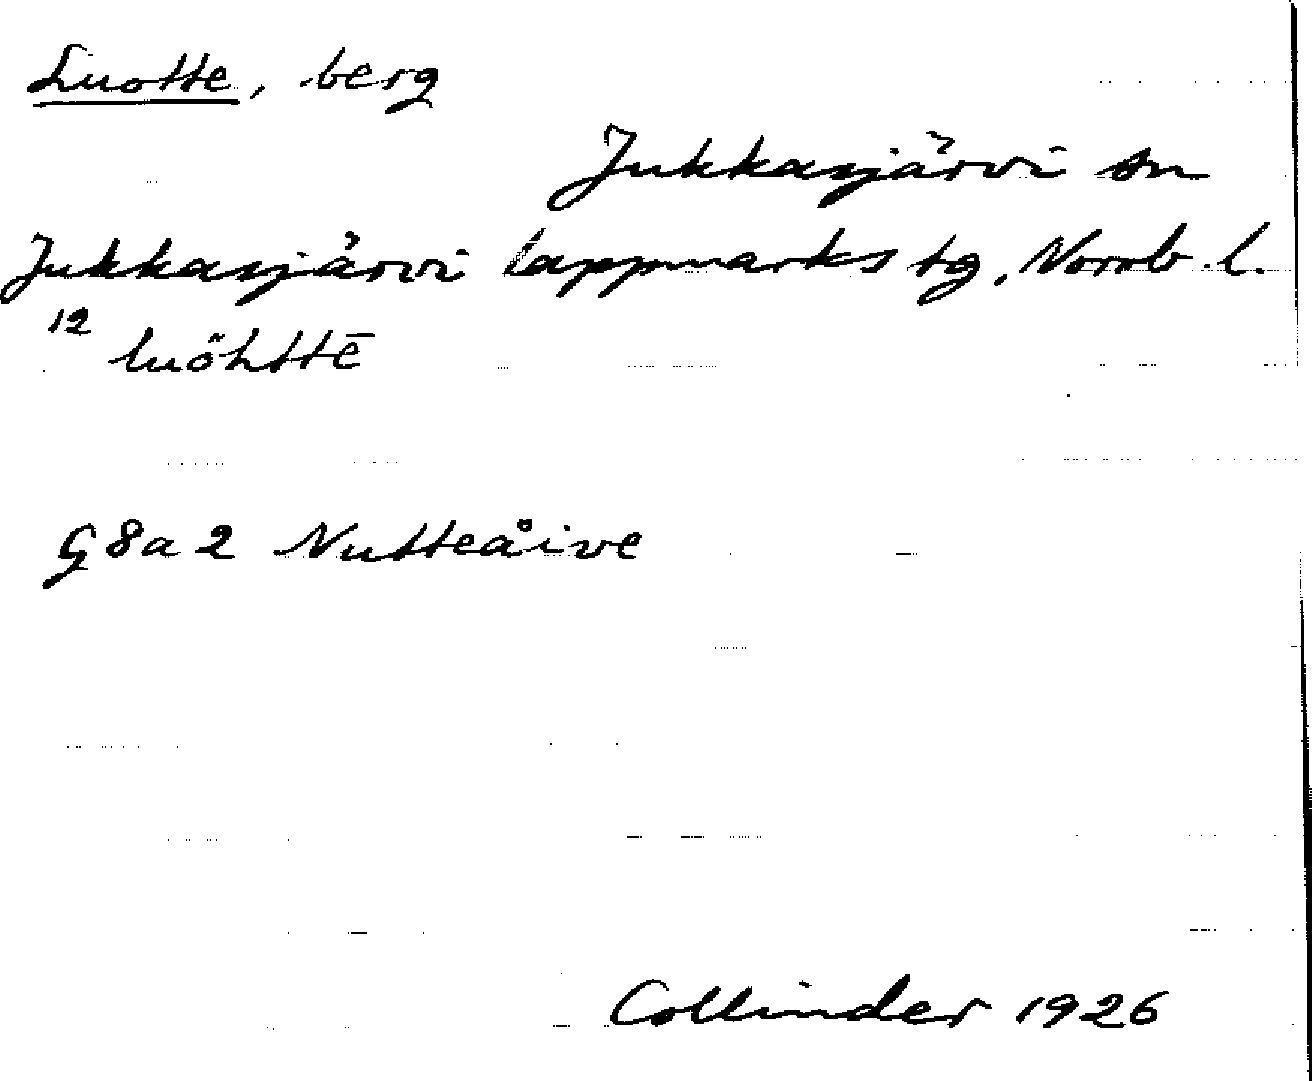 Luotte, berg
Jukkasjärvi sn
Jukkasjärvi lappmarks tg, Norrb. l.
12 luöhttē
G8a2 Nutteåive
Collinder 1926